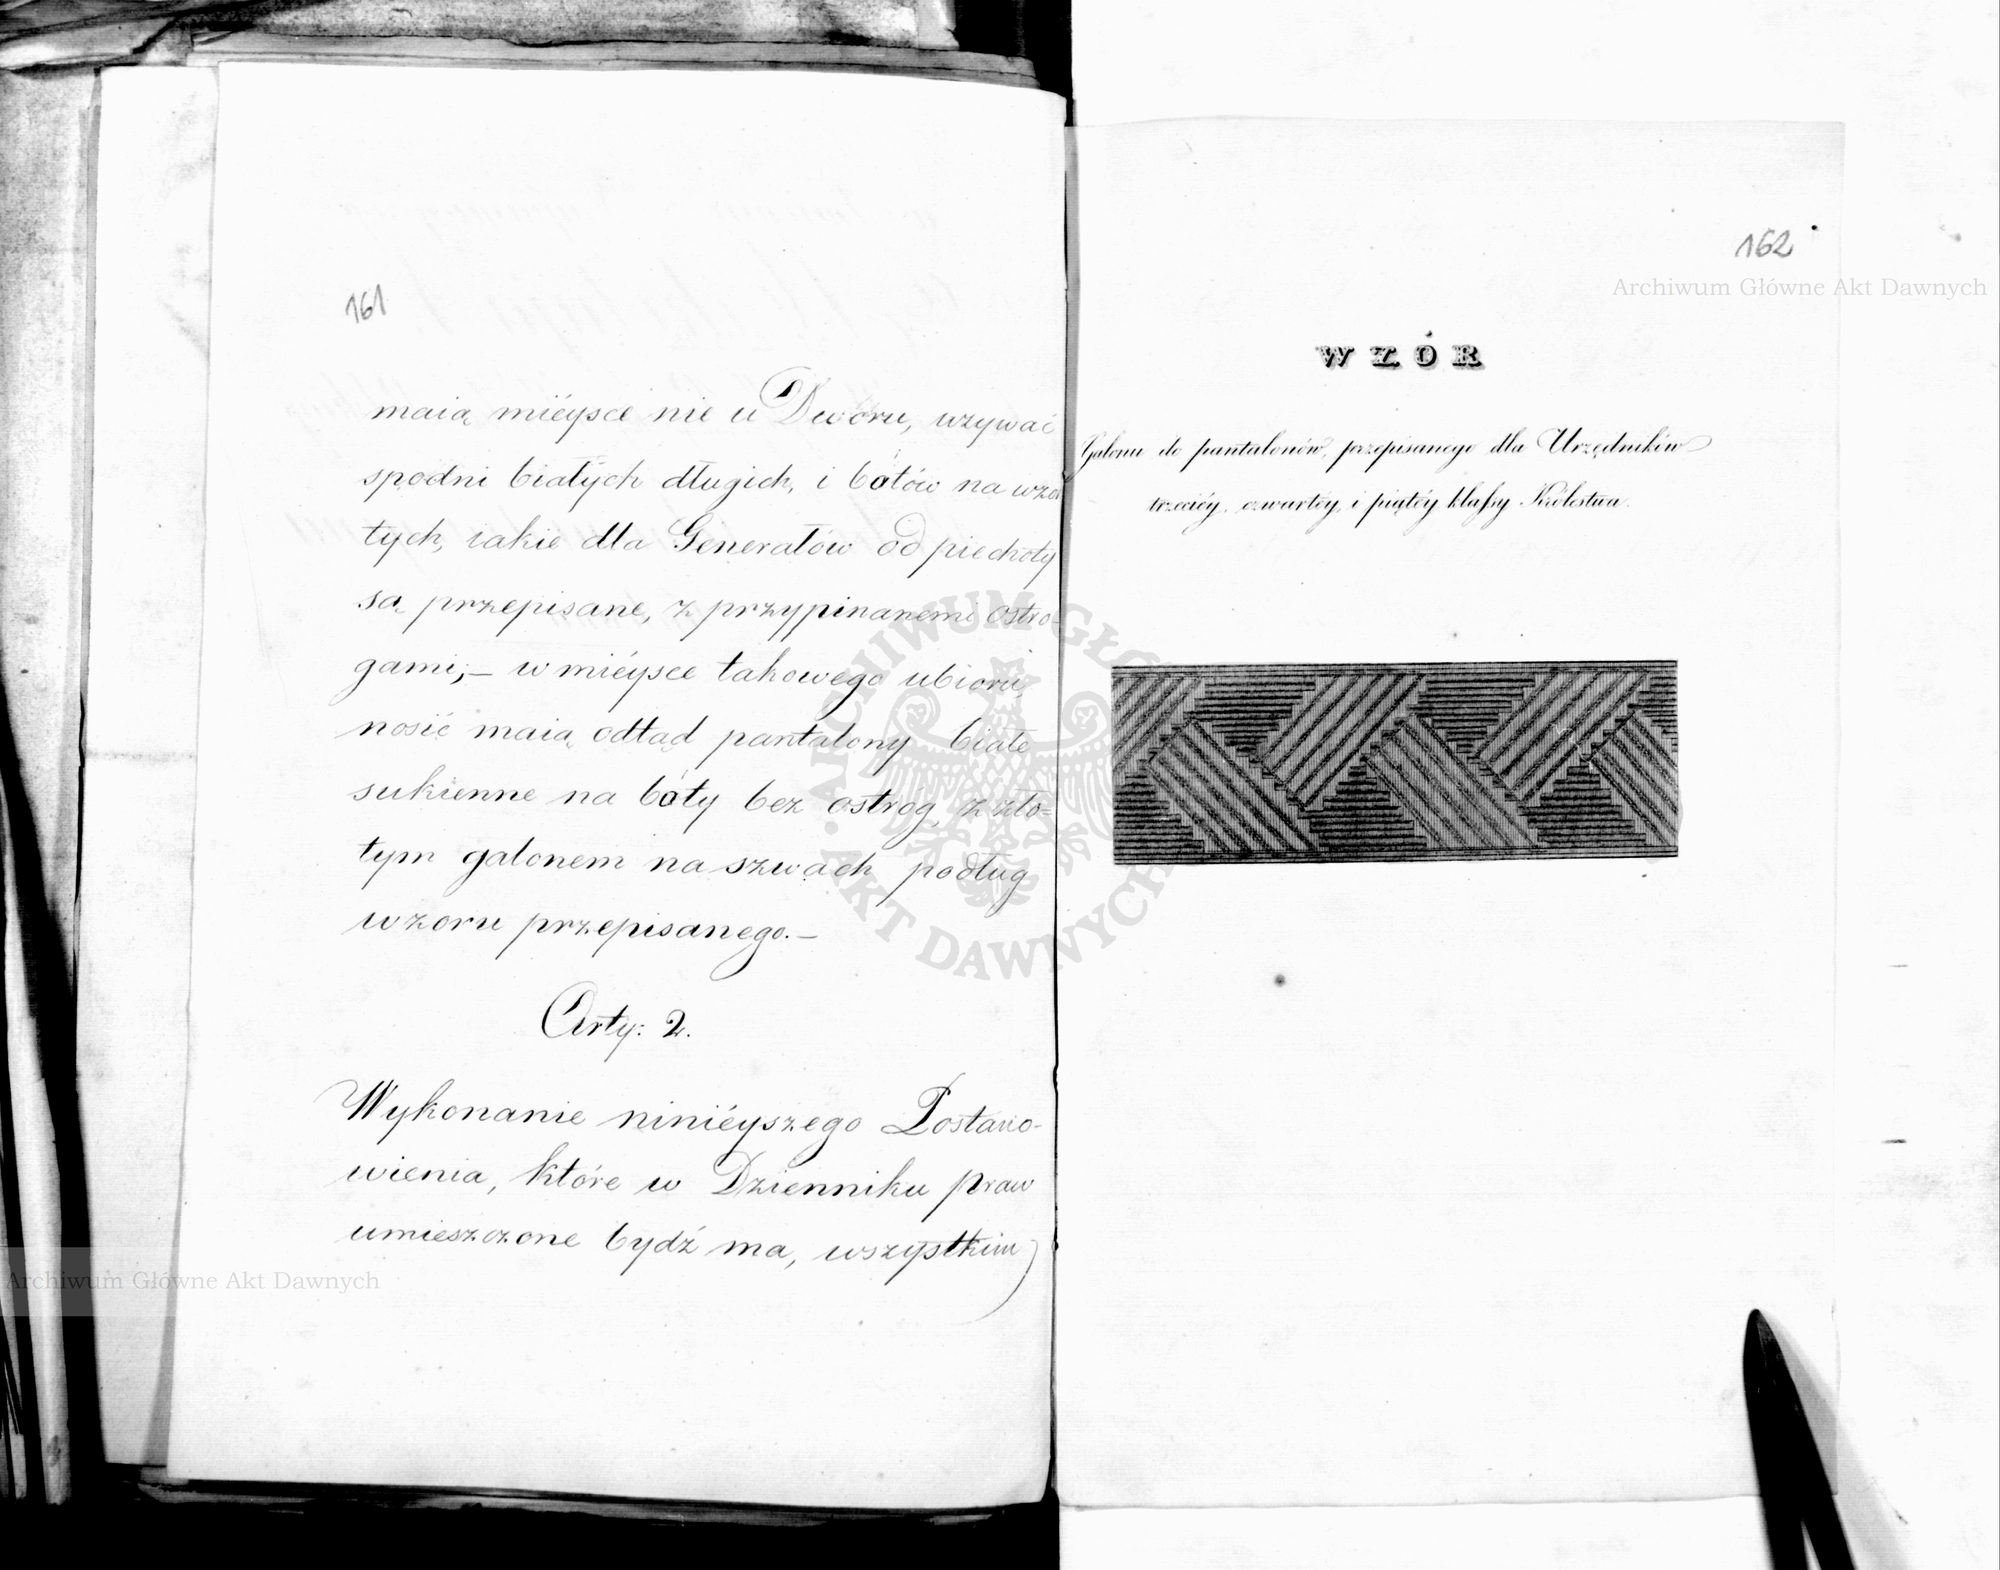 161
maią miéysce nie u Dworu, uzywać
spodni białych długich, i bótów na wzo
tych, iakie dla Generałów od piechoty
są przepisane, z przypinanemi ostro-
gami;— w miéysce takowego ubioru,
nosić maią odtąd pantalony białe
sukienne na bóty bez ostróg, z zło=
tym galonem na szwach podług
wzoru przepisanego.—
Arty: 2.
Wykonanie niniéyszego Postano-
wienia, które w Dzienniku praw
umieszczone bydź ma, wszystkim
162
WZÓR
Galonu do pantalonów, przepisanego dla Urzędników
trzeciéy, czwartéy, i piątéy klassy Królestwa.
Archiwum Główne Akt Dawnych
ARCHIWUM GŁÓWNE
AKT DAWNYCH
Archiwum Główne Akt Dawnych